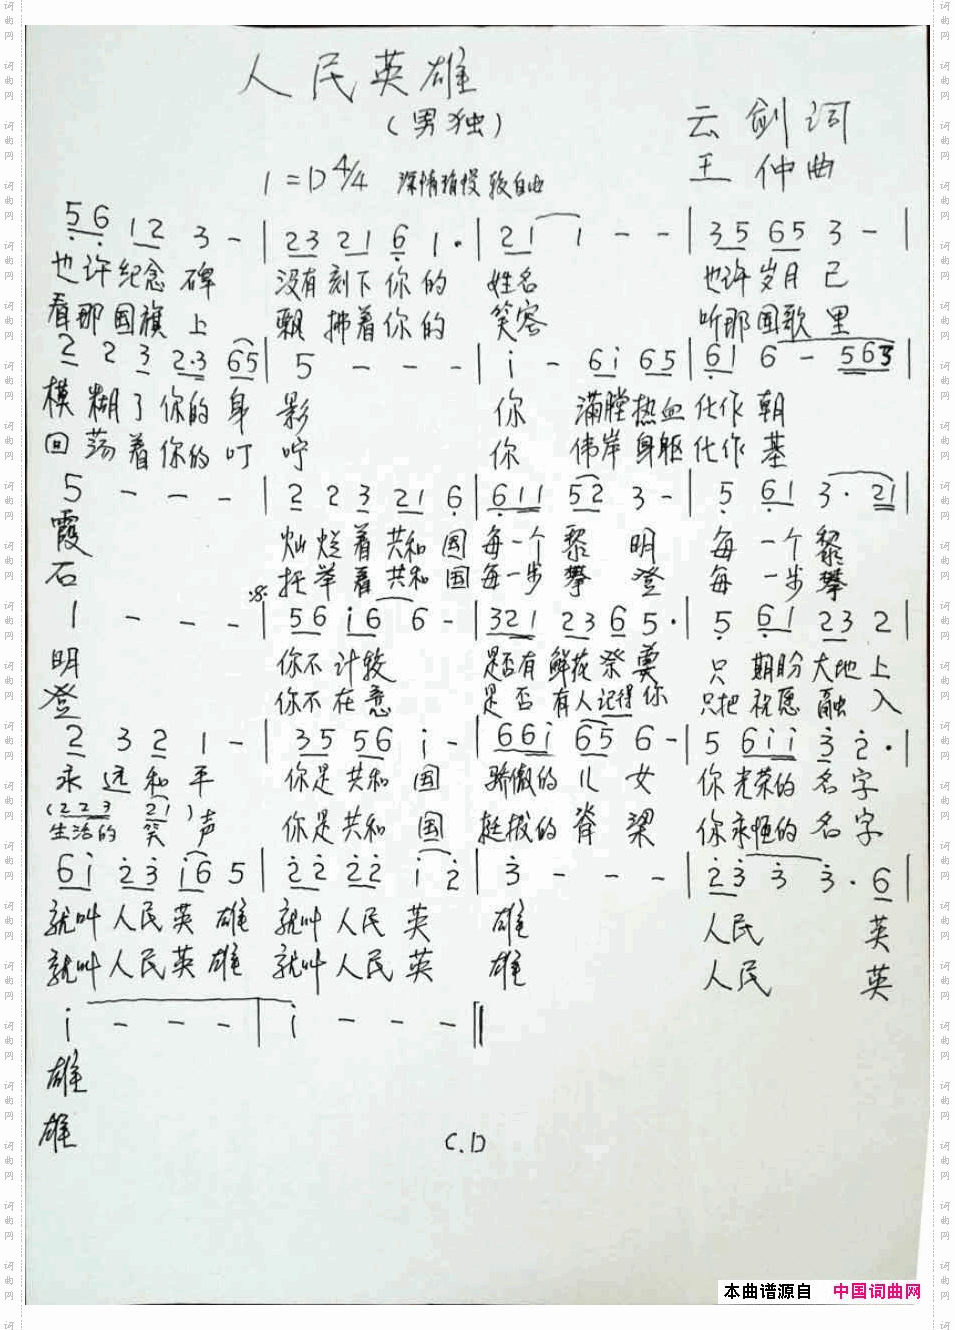 人民英雄
(男独)
云剑词
王仲曲
1=D 4/4 深情稍慢 较自由
5 6 1 2 3 - | 2 3 2 1 6 1 · | 2 1 1 - - | 3 5 6 5 3 - |
也许纪念碑 没有刻下你的 姓名 也许岁月已
看那国旗上 飘拂着你的 笑容 听那国歌里
2 2 3 2·3 6 5 | 5 - - - | i - 6 i 6 5 | 6 1 6 - 5 6 3 |
模糊了你的身 影 你 满膛热血 化作朝
回荡着你的叮 咛 你 伟岸身躯 化作基
5 - - - | 2 2 3 2 1 6 | 6 1 1 5 2 3 - | 5 6 1 3 · 2 1 |
霞 灿烂着共和国 每一个黎明 每一个黎
石 托举着共和国 每一步攀登 每一步攀
1 - - - | 5 6 i 6 6 - | 3 2 1 2 3 6 5 · | 5 6 1 2 3 2 |
明 你不计较 是否有鲜花祭奠 只期盼大地上
登 你不在意 是否有人记得你 只把祝愿融入
2 3 2 1 - | 3 5 5 6 i - | 6 6 i 6 5 6 - | 5 6 i i 3 2 · |
永远和平 你是共和国 骄傲的儿女 你光荣的名字
(2 2 3 2 1)
生活的笑声 你是共和国 挺拔的脊梁 你永恒的名字
6 i 2 3 i 6 5 | 2 2 2 2 i 2 | 3 - - - | 2 3 3 3 · 6 |
就叫人民英雄 就叫人民英 雄 人民 英
就叫人民英雄 就叫人民英 雄 人民 英
i - - - | i - - - ||
雄
雄
C.D
本曲谱源自 中国词曲网